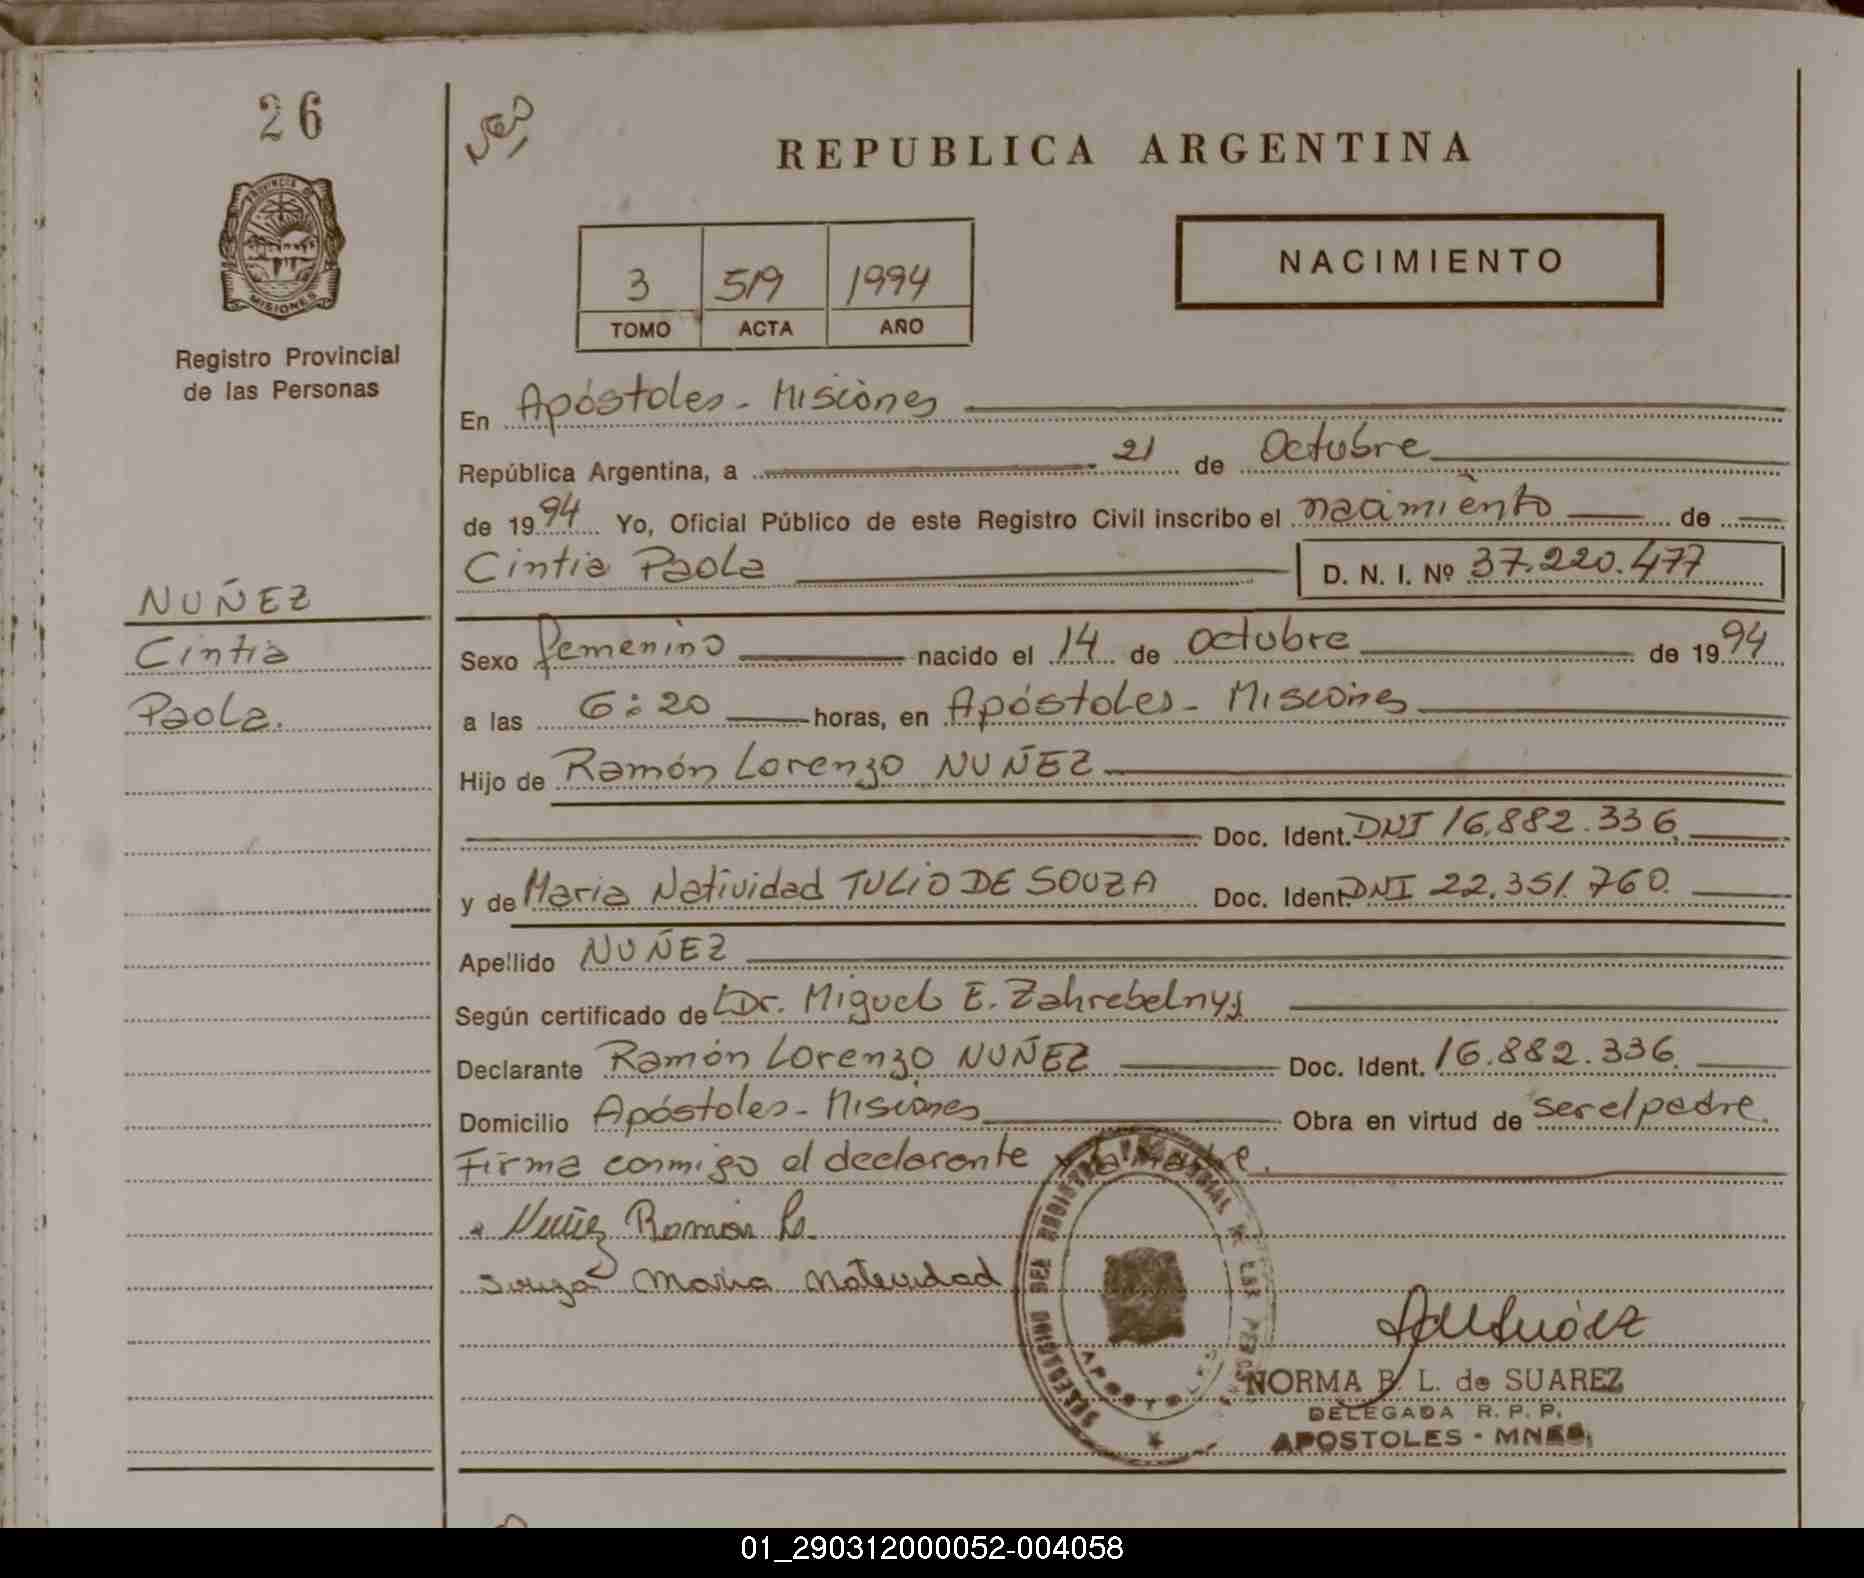 26
REPUBLICA ARGENTINA
PROVINCIA DE
MISIONES
Registro Provincial
de las Personas
3 519 1994
TOMO ACTA AÑO
NACIMIENTO
En Apóstoles - Misiones
República Argentina, a 21 de Octubre
de 1994 Yo, Oficial Público de este Registro Civil inscribo el nacimiento de
Cintia Paola D. N. I. Nº 37.220.477
NUÑEZ
Cintia
Paola.
Sexo femenino nacido el 14 de octubre de 1994
a las 6:20 horas, en Apóstoles - Misiones
Hijo de Ramón Lorenzo NUÑEZ
Doc. Ident. DNI 16.882.336.
y de Maria Natividad TULIO DE SOUZA Doc. Ident. DNI 22.351.760.
Apellido NUÑEZ
Según certificado de Dr. Miguel E. Zahrebelnyj
Declarante Ramón Lorenzo NUÑEZ Doc. Ident. 16.882.336.
Domicilio Apóstoles - Misiones Obra en virtud de ser el padre.
Firma conmigo el declarante y la madre.
Nuñez Ramón L.
Souza Maria Natividad
NORMA B. L. de SUAREZ
DELEGADA R. P. P.
APOSTOLES - MNES.
01_290312000052-004058